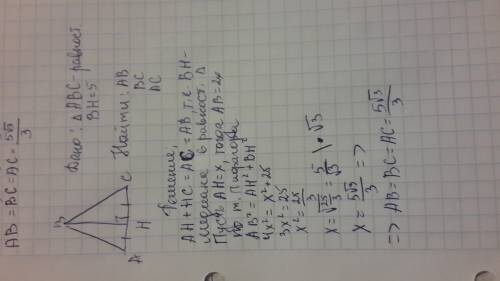 AB = BC = AC = 5√3/3
Дано: △ABC - равност.
BH = 5
Найти: AB
BC
AC
B
A
H
C
Решение.
AH + HC = AC = AB, т.к BH -
медиана в равност. △
Пусть AH = x, тогда AB = 2x
по т. Пифагора
AB² = AH² + BH²
4x² = x² + 25
3x² = 25
x² = 25/3
x = √25/√3 = 5/√3 | · √3
x = 5√3/3 =>
=> AB = BC = AC = 5√3/3